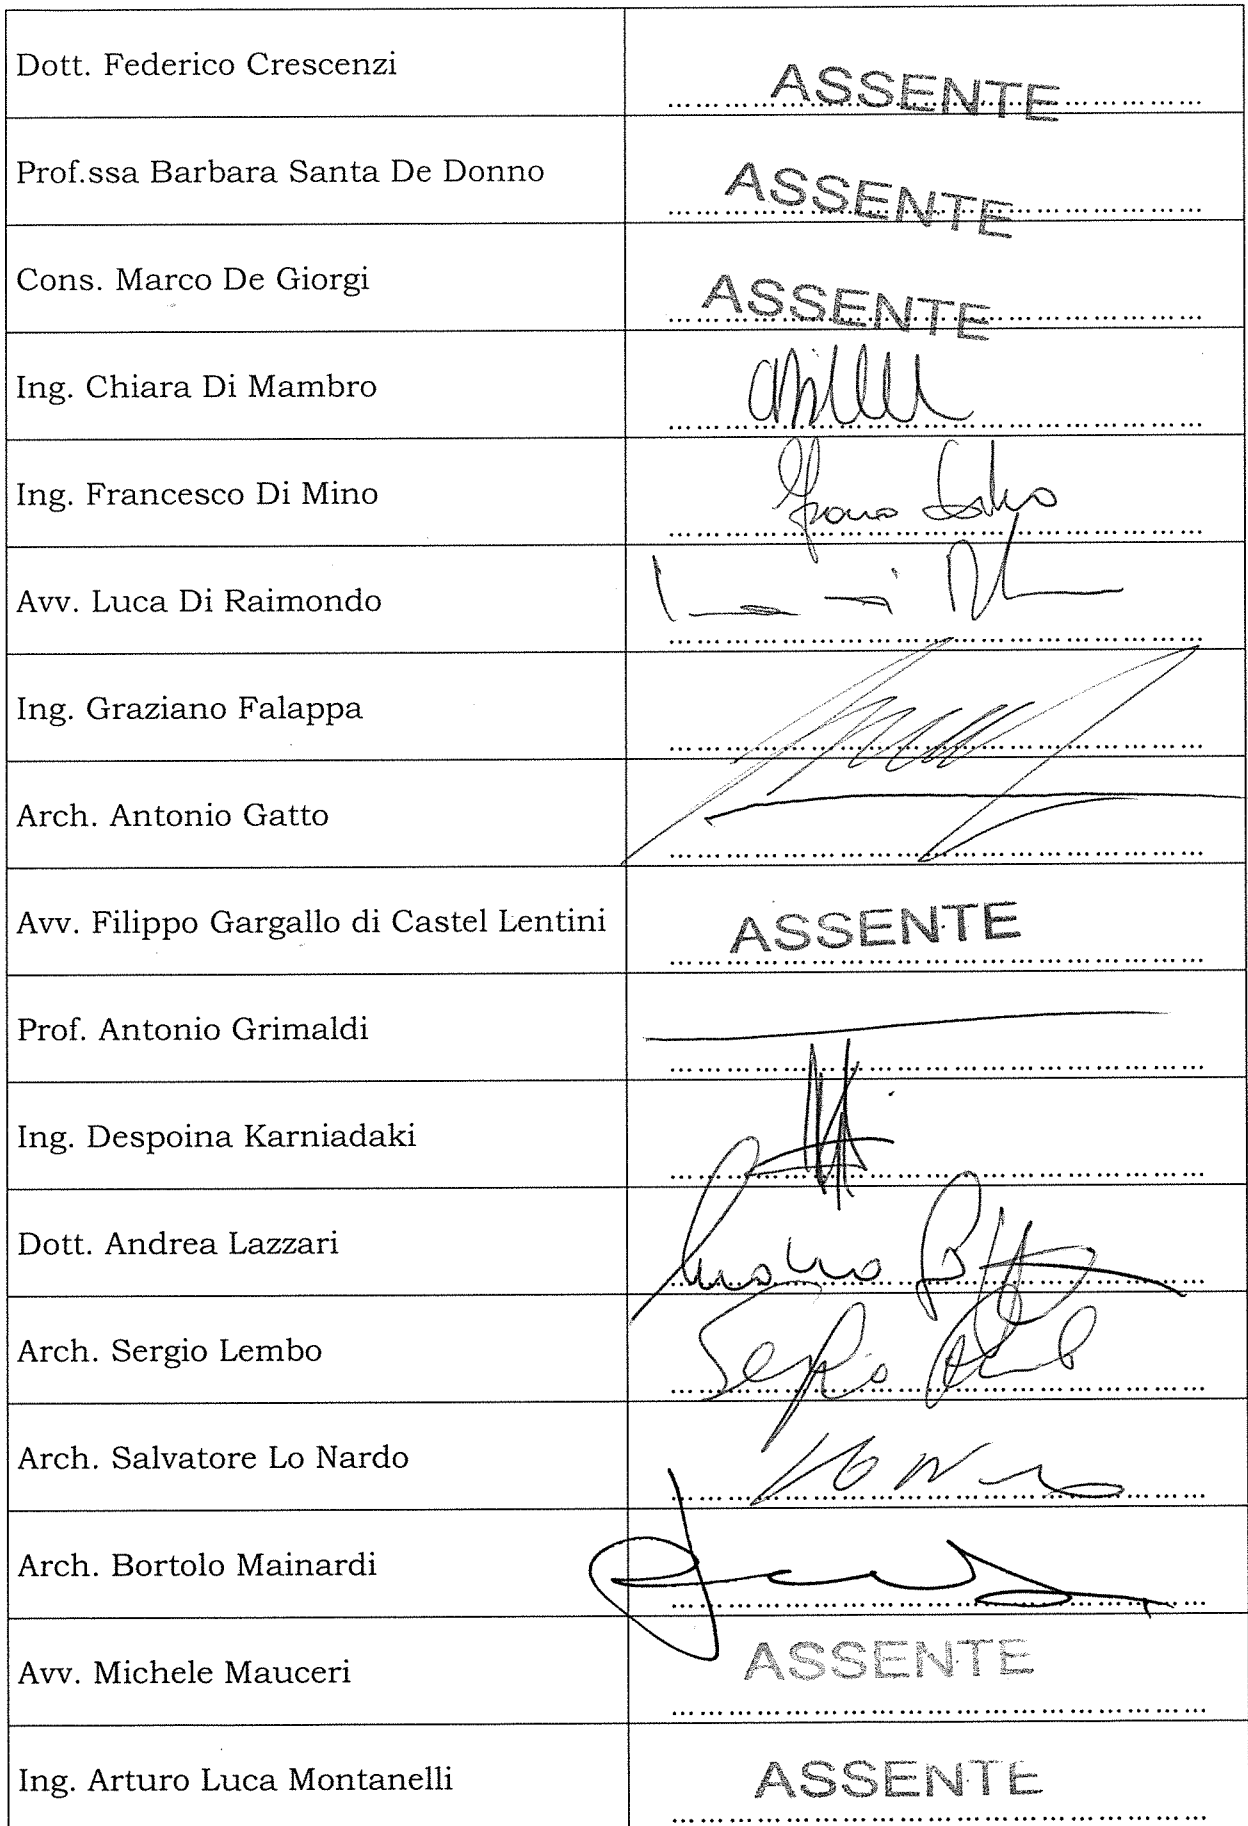 Dott. Federico Crescenzi ASSENTE
Prof.ssa Barbara Santa De Donno ASSENTE
Cons. Marco De Giorgi ASSENTE
Ing. Chiara Di Mambro
Ing. Francesco Di Mino
Avv. Luca Di Raimondo
Ing. Graziano Falappa
Arch. Antonio Gatto
Avv. Filippo Gargallo di Castel Lentini ASSENTE
Prof. Antonio Grimaldi
Ing. Despoina Karniadaki
Dott. Andrea Lazzari
Arch. Sergio Lembo Sergio
Arch. Salvatore Lo Nardo
Arch. Bortolo Mainardi
Avv. Michele Mauceri ASSENTE
Ing. Arturo Luca Montanelli ASSENTE